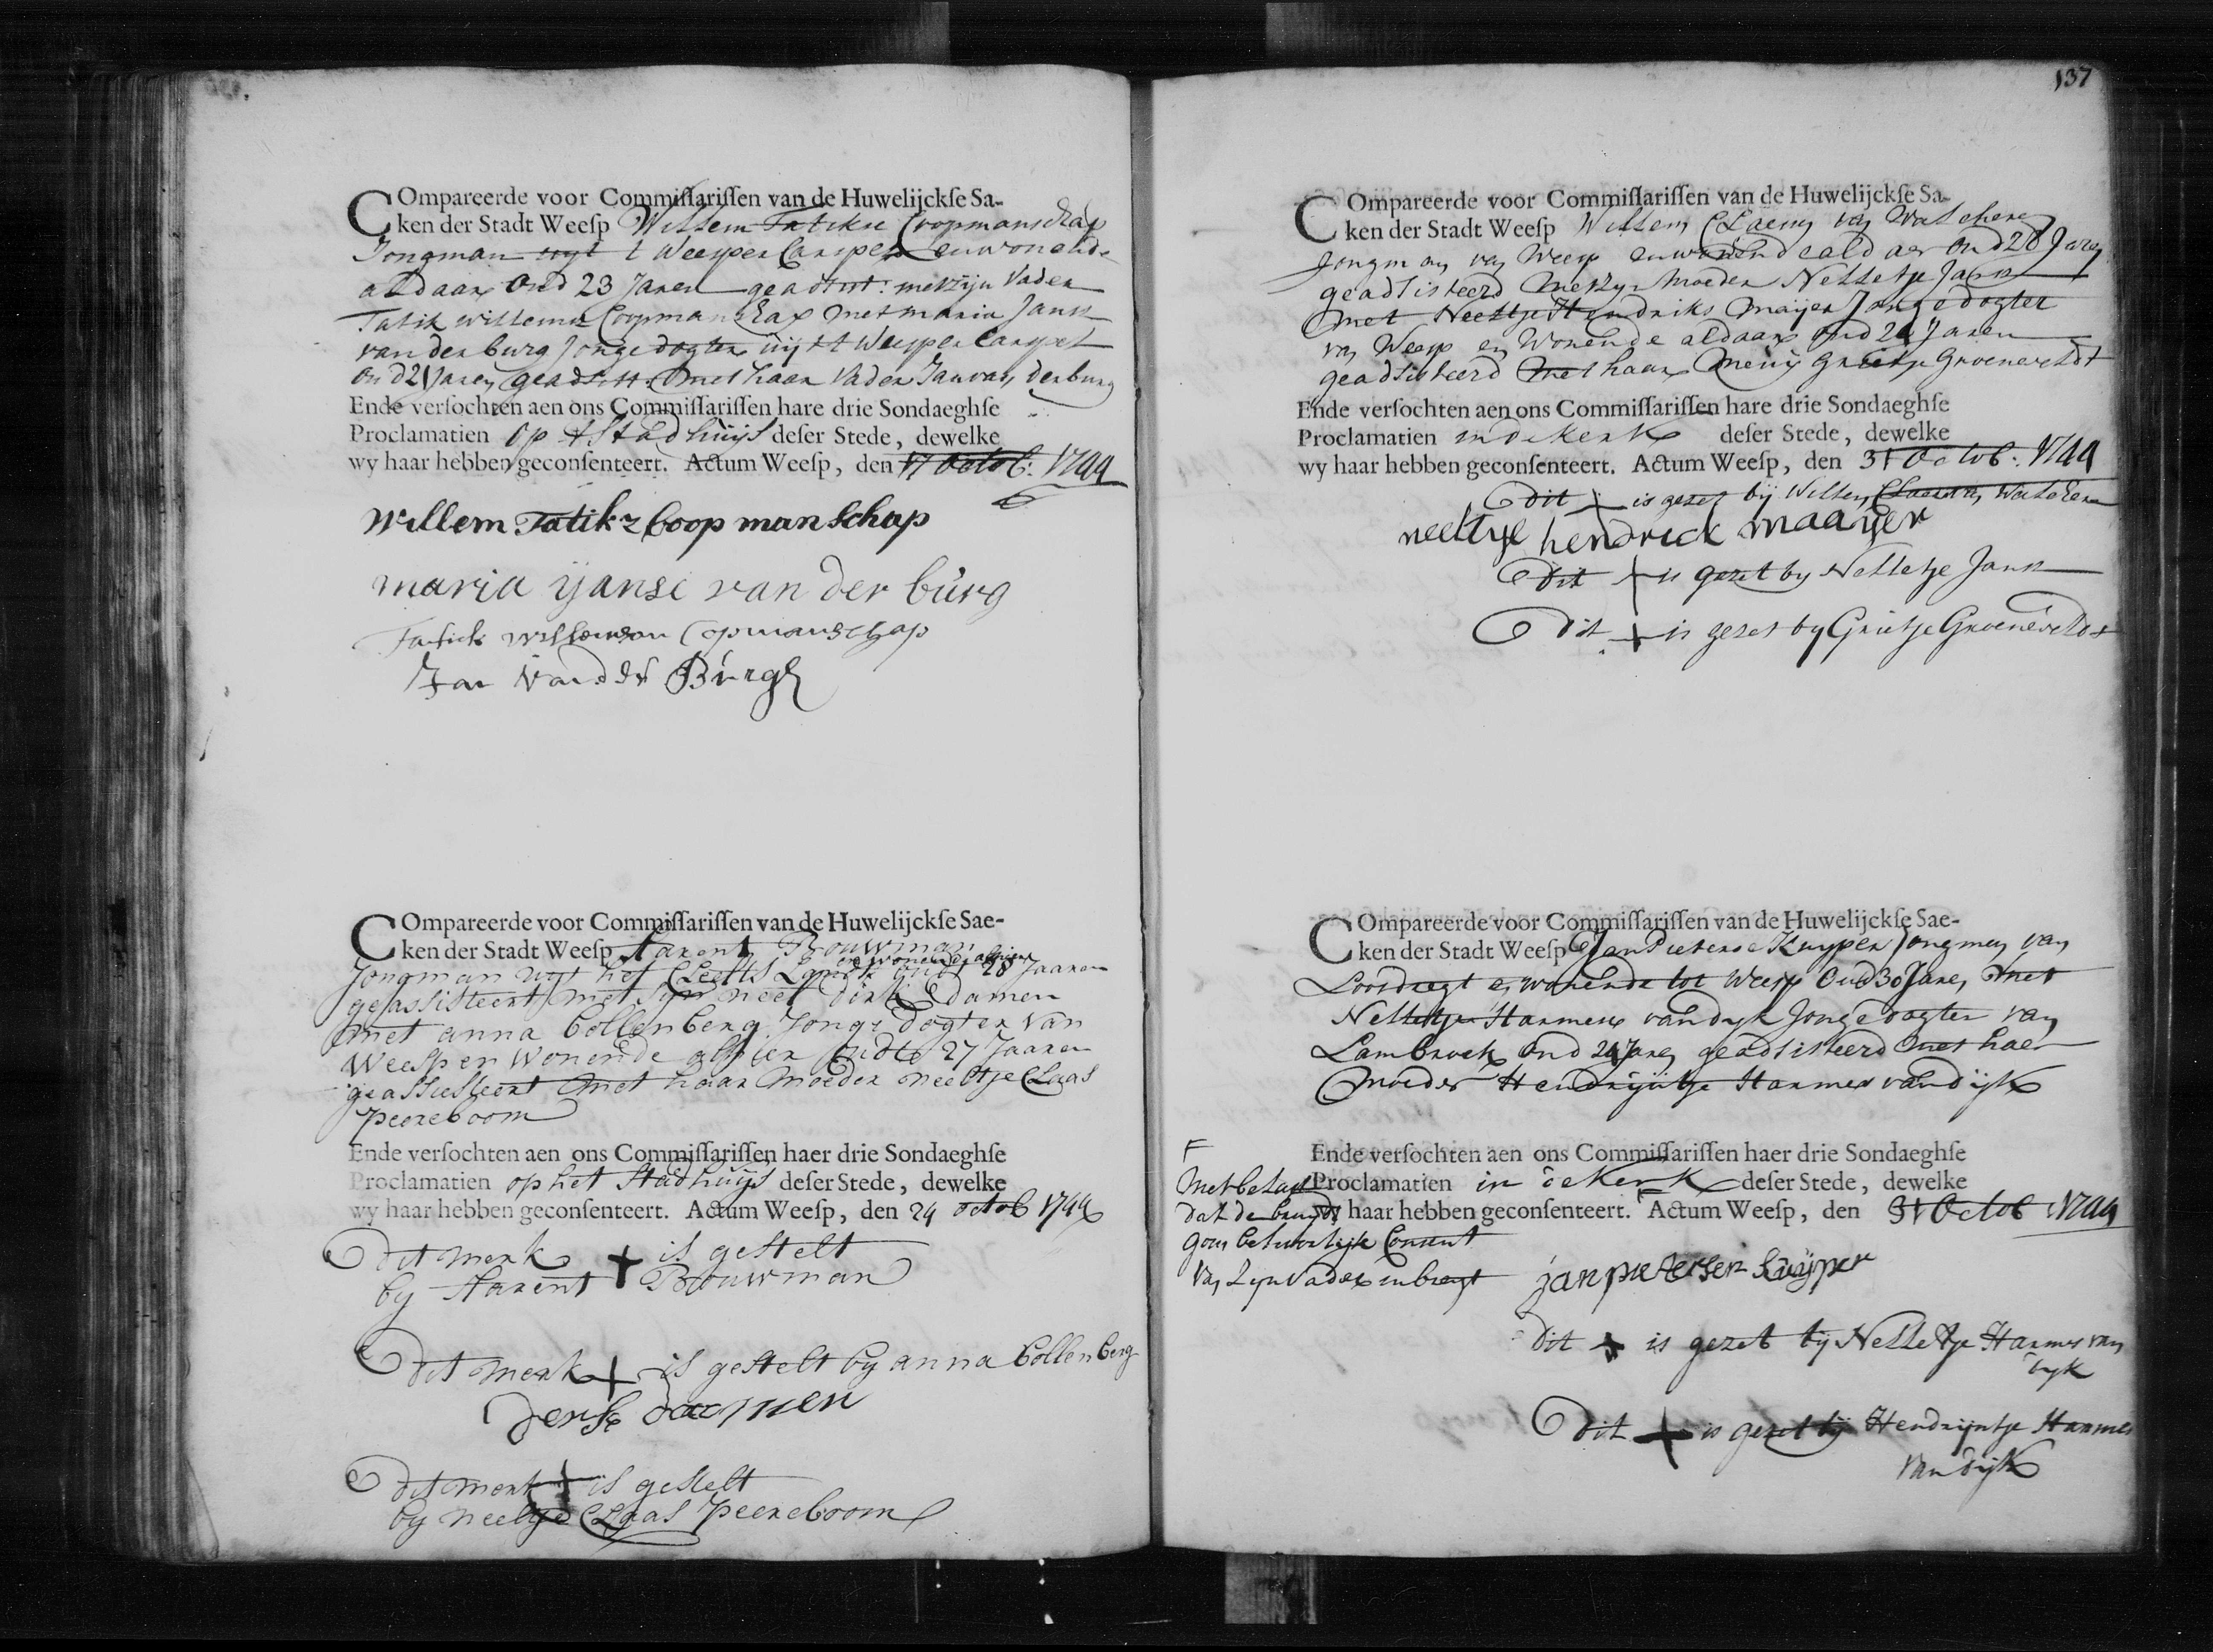 COmpareerde voor Commissarissen van de Huwelijckse Sa-
ken der Stadt Weesp Willem Tatikse Coopmanschap
Jongman uyt t Weesper Carspel en wonende
aldaar oud 23 Jaren geadsist: met zijn Vader
Tatik willemse Coopmanschap met maria Janse
van der burg Jonge dogter uij 't Weesper Carspel
oud 21 Jaren geadsist: met haar Vader Jan van der burg
Ende versochten aen ons Commissarissen hare drie Sondaeghse
Proclamatien op 't Stadhuijs deser Stede, dewelke
wy haar hebben geconsenteert. Actum Weesp, den 17 octob: 1744
Willem Tatikz Coopmanschap
maria ijanse van der burg
Tatick willemsen Copmanschap
Jan Van der Burgh
COmpareerde voor Commissarissen van de Huwelijckse Sae-
ken der Stadt Weesp Harent Bouwman
en wonende alhier
Jongman uyt het Cleefts Landt oudt 28 Jaaren
geassisteert met sijn neef Dirk Damen
met anna Collenberg Jonge dogter van
Weesp en wonende alhier oudt 27 Jaaren
geassisteert met haar moeder neeltje Claas
peereboom
Ende versochten aen ons Commissarissen haer drie Sondaeghse
Proclamatien op het Stadhuijs deser Stede, dewelke
wy haar hebben geconsenteert. Actum Weesp, den 24 octob 1744
Dit merk + is gestelt
by Harent Bouwman
Dit merk + is gestelt by anna Collenberg
Derk daamen
Dit merk + is gestelt
by neeltje Claas peereboom
137
COmpareerde voor Commissarissen van de Huwelijckse Sa-
ken der Stadt Weesp Willem Claesz van Walcheren
Jongman van Weesp en wonende aldaer oud 28 Jaren
geadsisteerd met zyn Moeder Nelletje Jans
met Neeltje Hendriks Maijer Jonge dogter
van Weesp en Wonende aldaar oud 24 Jaren
geadsisteerd met haar Meuij Grietje Groeneveldt
Ende versochten aen ons Commissarissen hare drie Sondaeghse
Proclamatien in de Kerk deser Stede, dewelke
wy haar hebben geconsenteert. Actum Weesp, den 31 Octob: 1744
Dit + is gezet bij Willem Claesz van Walcheren
neeltye hendrick maaijer
Dit + is gezet by Nelletje Jans
Dit + is gezet by Grietje Groeneveldt
COmpareerde voor Commissarissen van de Huwelijckse Sae-
ken der Stadt Weesp Jan Pieterse Kuyper Jongman van
Loosdregt en wonende tot Weesp Oud 30 Jaren met
Nelletje Harmens van dyk Jonge dogter van
Lambroek oud 24 Jaren geadsisteerd met haer
moeder Hendrijntje Harmens van dijk
Ende versochten aen ons Commissarissen haer drie Sondaeghse
Proclamatien in de Kerk deser Stede, dewelke
wy haar hebben geconsenteert. F Actum Weesp, den 31 Octob 1744
F
Met belast
dat de bruyd
gom behoorlijk Consent
van zyn vader inbrengt
jan pietersen kuijper
Dit + is gezet bij Nelletje Harmens van
dyk
Dit + is gezet bij Hendrijntje Harmens
van dijk